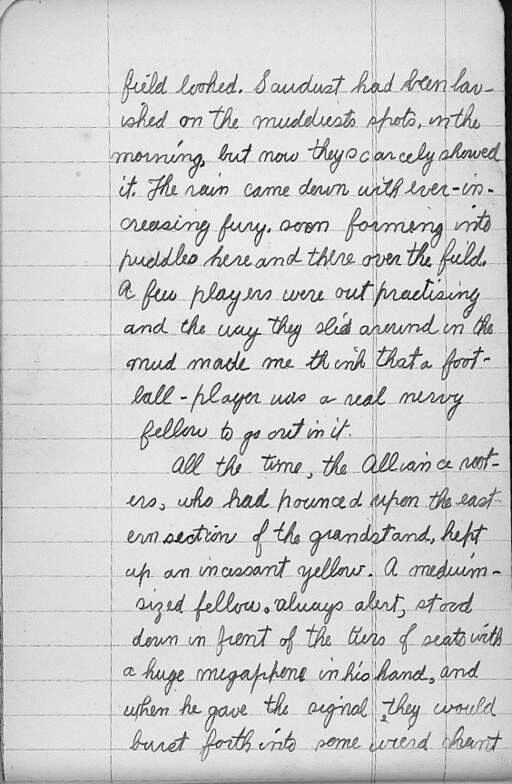 field looked. Sawdust had been lav-
ished on the muddiests spots, in the
morning, but now they scarcely showed
it. The rain came down with ever-in-
creasing fury. soon forming into
puddles here and there over the field.
A few players were out practising
and the way they slid around in the
mud made me think that a foot-
ball-player was a real nervy
fellow to go out in it.
All the time, the Alliance root-
ers, who had pounced upon the east-
ern section of the grandstand, kept
up an incessant yellow. A meduim-
sized fellow. always alert, stood
down in front of the tiers of seats with
a huge megaphone in his hand, and
when he gave the signal, they would
burst forth into some wierd chant